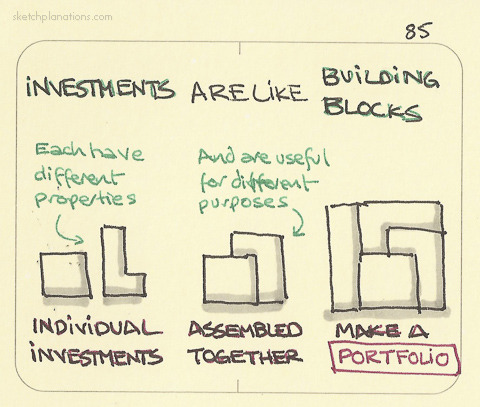 sketchplanations.com
85
INVESTMENTS ARE LIKE BUILDING BLOCKS
Each have
different
properties
And are useful
for different
purposes
INDIVIDUAL
INVESTMENTS
ASSEMBLED
TOGETHER
MAKE A
PORTFOLIO